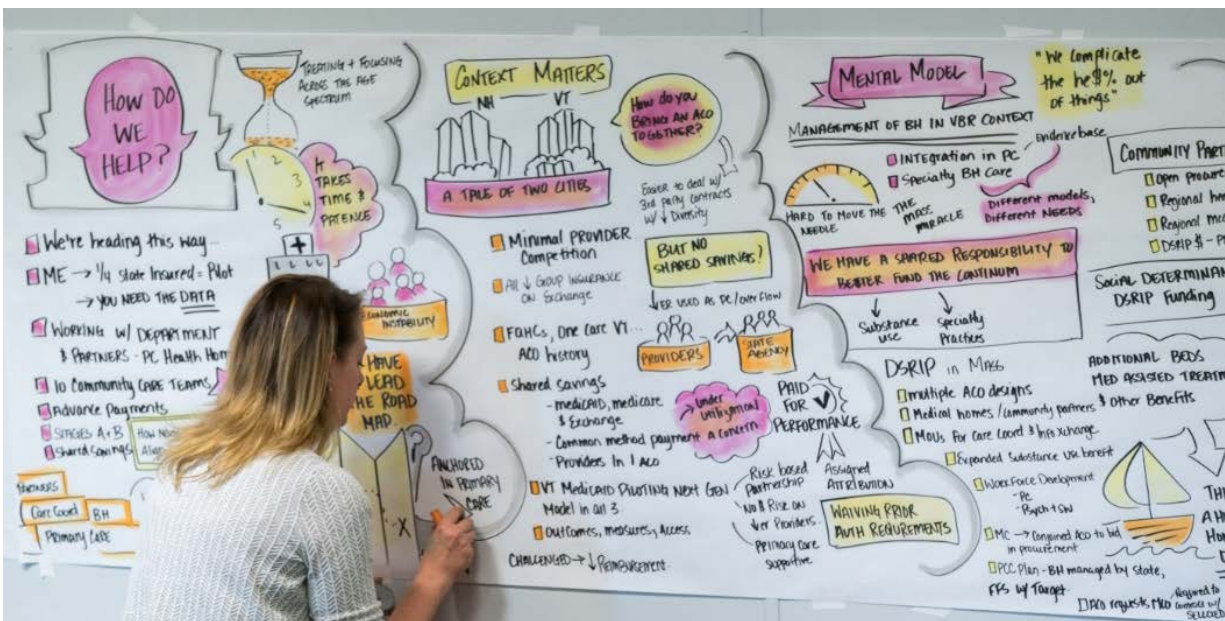 HOW DO
WE
HELP?
TREATING + FOCUSING
ACROSS THE AGE
SPECTRUM
1
2
3
4
5
IT
TAKES
TIME &
PATENCE
We're heading this way...
ME → 1/4 State Insured = Pilot
→ YOU NEED THE DATA
WORKING W/ DEPARTMENT
& PARTNERS - PC Health Hom
10 Community CARE TEAMS
Advance Payments
STAGES A+B
Shared Savings
How
Align
PARTNERS
Care Coord
BH
Primary CARE
ECONOMIC
INSTABILITY
HAVE
LEAD
THE ROAD
MAP
X
ANCHORED
IN PRIMARY
CARE
CONTEXT MATTERS
NH
VT
A TALE OF TWO CITIES
Minimal PROVIDER
Competition
All ↓ Group INSURANCE
ON Exchange
FQHCs, One Care VT...
ACO history
Shared savings
- medicAID, medicare
& Exchange
- Common method payment
- Providers In 1 ACO
VT MEDICAID PILOTING NEXT GEN
Model in all 3
Outcomes, measures, Access
CHALLENGED → ↓ Reimbursement
How do you
BRING AN ACO
TOGETHER?
Easier to deal w/
3rd party contracts
w/ ↓ Diversity
BUT NO
SHARED SAVINGS?
↓ ER USED AS PC/overflow
PROVIDERS
STATE
AGENCY
Under
utilization
A concern
PAID
FOR
PERFORMANCE
Risk based
Partnership
No $ Risk on
↓er Providers.
Primary Care
Supportive
Assigned
Attribution
WAIVING PRIOR
AUTH REQUREMENTS
MENTAL MODEL
"We complicate
the he$% out
of things"
MANAGEMENT OF BH IN VBR CONTEXT
INTEGRATION in PC
Specialty BH Care
Evidence base
Different models,
Different NEEDS
HARD TO MOVE THE
NEEDLE
THE
MASS
MIRACLE
WE HAVE A SHARED RESPONSIBILITY TO
BETTER FUND THE CONTINUUM
Substance
use
Specialty
Practices
DSRIP in MASS
multiple ACO designs
Medical homes / community partners
MOUs For Care Coord & Info Xchange
Expanded Substance Use benefit
WorkForce Development
- PC
- Psych + SW
MC → Conjoined ACO to bid
in procurement
PCC Plan - BH managed by state,
FFS w/ Target.
ACO requests MCO
Required to
w/
SELECTED
COMMUNITY PARTN
Open procure
Regional
Regional
DSRIP $ -
Social DETERMINAN
DSRIP Funding
ADDITIONAL BEDS
MED ASSISTED TREATM
& Other Benefits